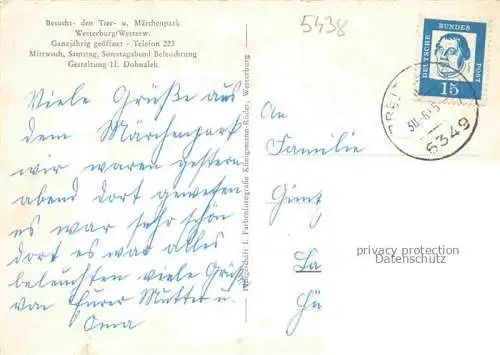 Besucht den Tier- u. Märchenpark
Westerburg/Westerw.
Ganzjährig geöffnet - Telefon 223
Mittwoch, Samstag, Sonntagabend Beleuchtung
Gestaltung H. Dohnalek
5438
DEUTSCHE BUNDESPOST
15
6349
Viele Grüße aus
dem Märchenpark
wir waren gestern
abend dort gewesen
es war sehr schön
dort es war alles
beleuchtet viele Grüße
von Eurer Mutter u.
Oma
An
Familie
Günt
La
Hü
Fachgeschäft f. Farbenfotografie Königsmann-Röder, Westerburg
privacy protection
Datenschutz